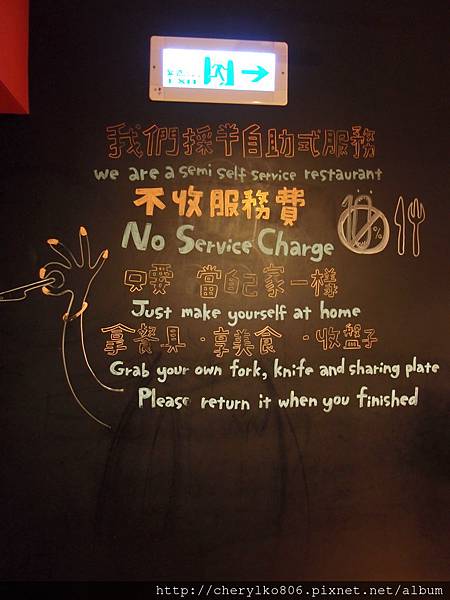 EXIT
我們採半自助式服務
we are a semi self service restaurant
不收服務費
No Service Charge
10%
只要 當自己家一樣
Just make yourself at home
拿餐具．享美食．收盤子
Grab your own fork, knife and sharing plate
Please return it when you finished
http://cherylko806.pixnet.net/album